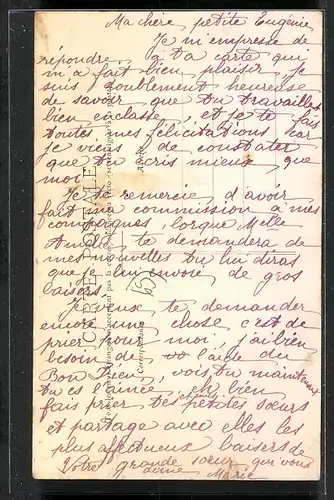 Ma chère petite Eugénie
Je m'empresse de
répondre à ta carte qui
m'a fait bien plaisir je
suis doublement heureuse
de savoir que tu travailles
bien en classe, et je te fais
toutes mes félicitations car
je viens de constater
que tu écris mieux, que
moi
Je te remercie d'avoir
fait ma commission à mes
compagnes, lorsque Melle
te demandera de
mes nouvelles tu lui diras
que je lui envoie de gros
baisers
Je veux te demander
encore une chose c'est de
prier pour moi, j'ai bien
besoin de l'aide du
Bon Dieu, vois tu maintenant
tu es l'aînée, eh bien
fais prier tes chères petites sœurs
et partage avec elles les
plus affectueux baisers de
Votre grande sœur qui vous
aime Marie
CARTE POSTALE
Correspondance
Adresse